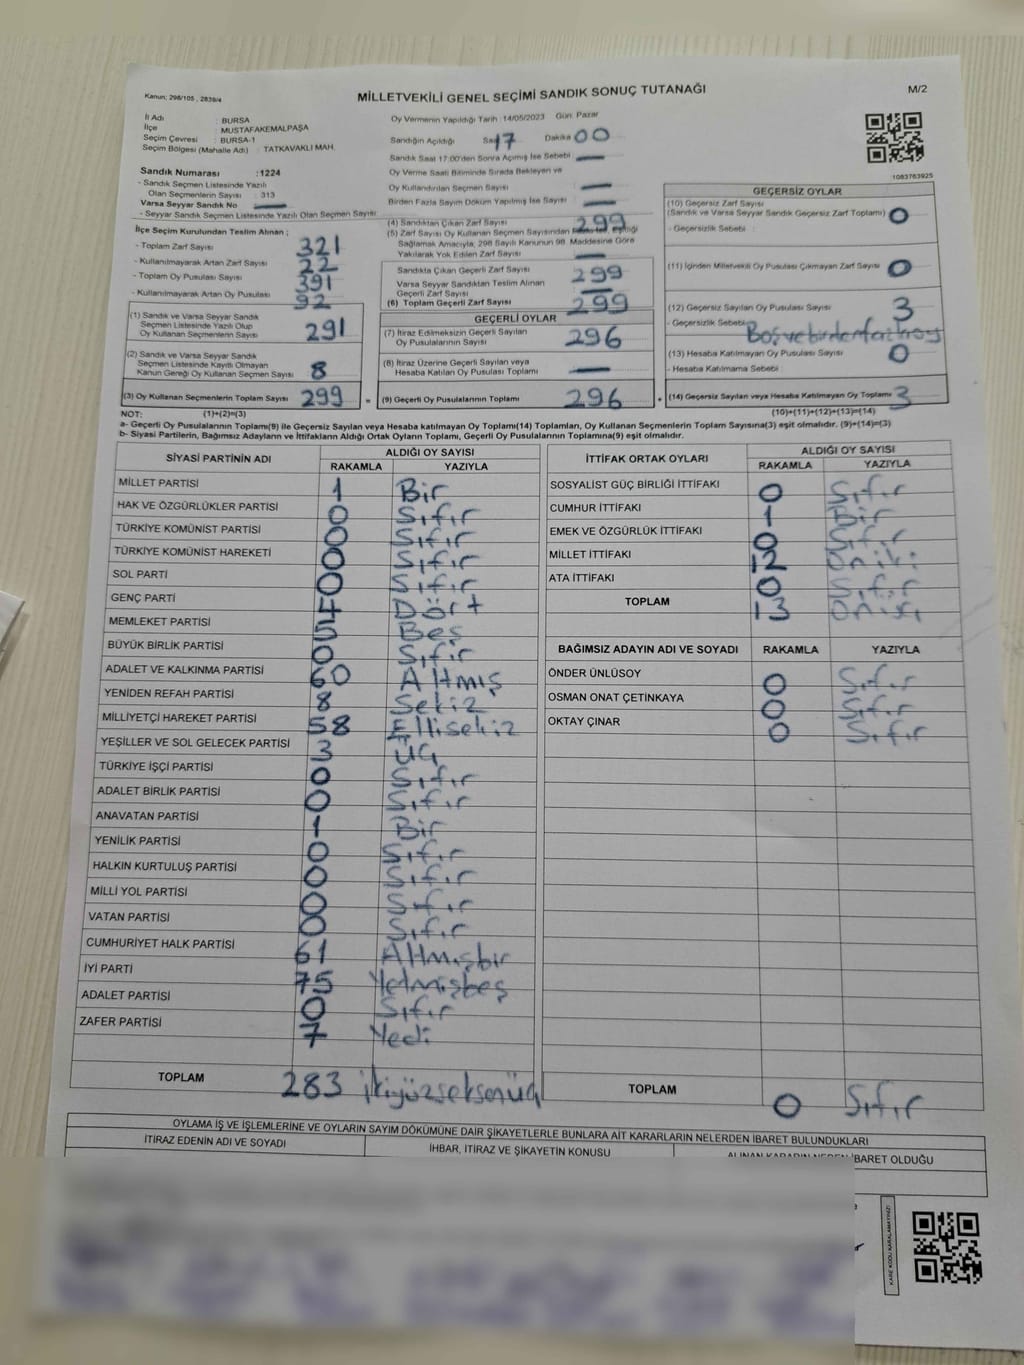 Kanun: 298/105 , 2839/4
MİLLETVEKİLİ GENEL SEÇİMİ SANDIK SONUÇ TUTANAĞI
M/2
İl Adı : BURSA
İlçe : MUSTAFAKEMALPAŞA
Seçim Çevresi : BURSA-1
Seçim Bölgesi (Mahalle Adı) : TATKAVAKLI MAH.
Oy Vermenin Yapıldığı Tarih : 14/05/2023 Gün: Pazar
Sandığın Açıldığı Saat 17 Dakika 00
Sandık Saat 17:00'den Sonra Açılmış İse Sebebi —
Oy Verme Saati Bitiminde Sırada Bekleyen ve
Oy Kullandırılan Seçmen Sayısı —
Birden Fazla Sayım Döküm Yapılmış İse Sayısı —
1083763925
Sandık Numarası : 1224
- Sandık Seçmen Listesinde Yazılı
Olan Seçmenlerin Sayısı : 313
Varsa Seyyar Sandık No —
- Seyyar Sandık Seçmen Listesinde Yazılı Olan Seçmen Sayısı:
İlçe Seçim Kurulundan Teslim Alınan ;
- Toplam Zarf Sayısı 321
- Kullanılmayarak Artan Zarf Sayısı 22
- Toplam Oy Pusulası Sayısı 391
- Kullanılmayarak Artan Oy Pusulası 92
(1) Sandık ve Varsa Seyyar Sandık
Seçmen Listesinde Yazılı Olup
Oy Kullanan Seçmenlerin Sayısı 291
(2) Sandık ve Varsa Seyyar Sandık
Seçmen Listesinde Kayıtlı Olmayan
Kanun Gereği Oy Kullanan Seçmen Sayısı 8
(3) Oy Kullanan Seçmenlerin Toplam Sayısı 299 =
(4) Sandıktan Çıkan Zarf Sayısı 299
(5) Zarf Sayısı Oy Kullanan Seçmen Sayısından
Sağlamak Amacıyla, 298 Sayılı Kanunun 98. Maddesine Göre
Yakılarak Yok Edilen Zarf Sayısı —
Sandıkta Çıkan Geçerli Zarf Sayısı 299
Varsa Seyyar Sandıktan Teslim Alınan
Geçerli Zarf Sayısı —
(6) Toplam Geçerli Zarf Sayısı 299
GEÇERLİ OYLAR
(7) İtiraz Edilmeksizin Geçerli Sayılan
Oy Pusulalarının Sayısı 296
(8) İtiraz Üzerine Geçerli Sayılan veya
Hesaba Katılan Oy Pusulası Toplamı —
(9) Geçerli Oy Pusulalarının Toplamı 296 +
GEÇERSİZ OYLAR
(10) Geçersiz Zarf Sayısı
(Sandık ve Varsa Seyyar Sandık Geçersiz Zarf Toplamı) 0
- Geçersizlik Sebebi :
(11) İçinden Milletvekili Oy Pusulası Çıkmayan Zarf Sayısı 0
(12) Geçersiz Sayılan Oy Pusulası Sayısı 3
- Geçersizlik Sebebi Boş ve birden fazla oy
(13) Hesaba Katılmayan Oy Pusulası Sayısı 0
- Hesaba Katılmama Sebebi
(14) Geçersiz Sayılan veya Hesaba Katılmayan Oy Toplamı 3
NOT: (1)+(2)=(3) (10)+(11)+(12)+(13)=(14)
a- Geçerli Oy Pusulalarının Toplamı(9) ile Geçersiz Sayılan veya Hesaba Katılmayan Oy Toplamı(14) Toplamları, Oy Kullanan Seçmenlerin Toplam Sayısına(3) eşit olmalıdır. (9)+(14)=(3)
b- Siyasi Partilerin, Bağımsız Adayların ve İttifakların Aldığı Ortak Oyların Toplamı, Geçerli Oy Pusulalarının Toplamına(9) eşit olmalıdır.
SİYASİ PARTİNİN ADI ALDIĞI OY SAYISI
RAKAMLA YAZIYLA
MİLLET PARTİSİ 1 Bir
HAK VE ÖZGÜRLÜKLER PARTİSİ 0 Sıfır
TÜRKİYE KOMÜNİST PARTİSİ 0 Sıfır
TÜRKİYE KOMÜNİST HAREKETİ 0 Sıfır
SOL PARTİ 0 Sıfır
GENÇ PARTİ 4 Dört
MEMLEKET PARTİSİ 5 Beş
BÜYÜK BİRLİK PARTİSİ 0 Sıfır
ADALET VE KALKINMA PARTİSİ 60 Altmış
YENİDEN REFAH PARTİSİ 8 Sekiz
MİLLİYETÇİ HAREKET PARTİSİ 58 Ellisekiz
YEŞİLLER VE SOL GELECEK PARTİSİ 3 Üç
TÜRKİYE İŞÇİ PARTİSİ 0 Sıfır
ADALET BİRLİK PARTİSİ 0 Sıfır
ANAVATAN PARTİSİ 1 Bir
YENİLİK PARTİSİ 0 Sıfır
HALKIN KURTULUŞ PARTİSİ 0 Sıfır
MİLLİ YOL PARTİSİ 0 Sıfır
VATAN PARTİSİ 0 Sıfır
CUMHURİYET HALK PARTİSİ 61 Altmışbir
İYİ PARTİ 75 Yetmişbeş
ADALET PARTİSİ 0 Sıfır
ZAFER PARTİSİ 7 Yedi
TOPLAM 283 İkiyüzseksenüç
İTTİFAK ORTAK OYLARI ALDIĞI OY SAYISI
RAKAMLA YAZIYLA
SOSYALİST GÜÇ BİRLİĞİ İTTİFAKI 0 Sıfır
CUMHUR İTTİFAKI 1 Bir
EMEK VE ÖZGÜRLÜK İTTİFAKI 0 Sıfır
MİLLET İTTİFAKI 12 Oniki
ATA İTTİFAKI 0 Sıfır
TOPLAM 13 Onüç
BAĞIMSIZ ADAYIN ADI VE SOYADI RAKAMLA YAZIYLA
ÖNDER ÜNLÜSOY 0 Sıfır
OSMAN ONAT ÇETİNKAYA 0 Sıfır
OKTAY ÇINAR 0 Sıfır
TOPLAM 0 Sıfır
OYLAMA İŞ VE İŞLEMLERİNE VE OYLARIN SAYIM DÖKÜMÜNE DAİR ŞİKAYETLERLE BUNLARA AİT KARARLARIN NELERDEN İBARET BULUNDUKLARI
İTİRAZ EDENİN ADI VE SOYADI İHBAR, İTİRAZ VE ŞİKAYETİN KONUSU ALINAN KARARIN NEDEN İBARET OLDUĞU
KARE KODU KARALAMAYINIZ!